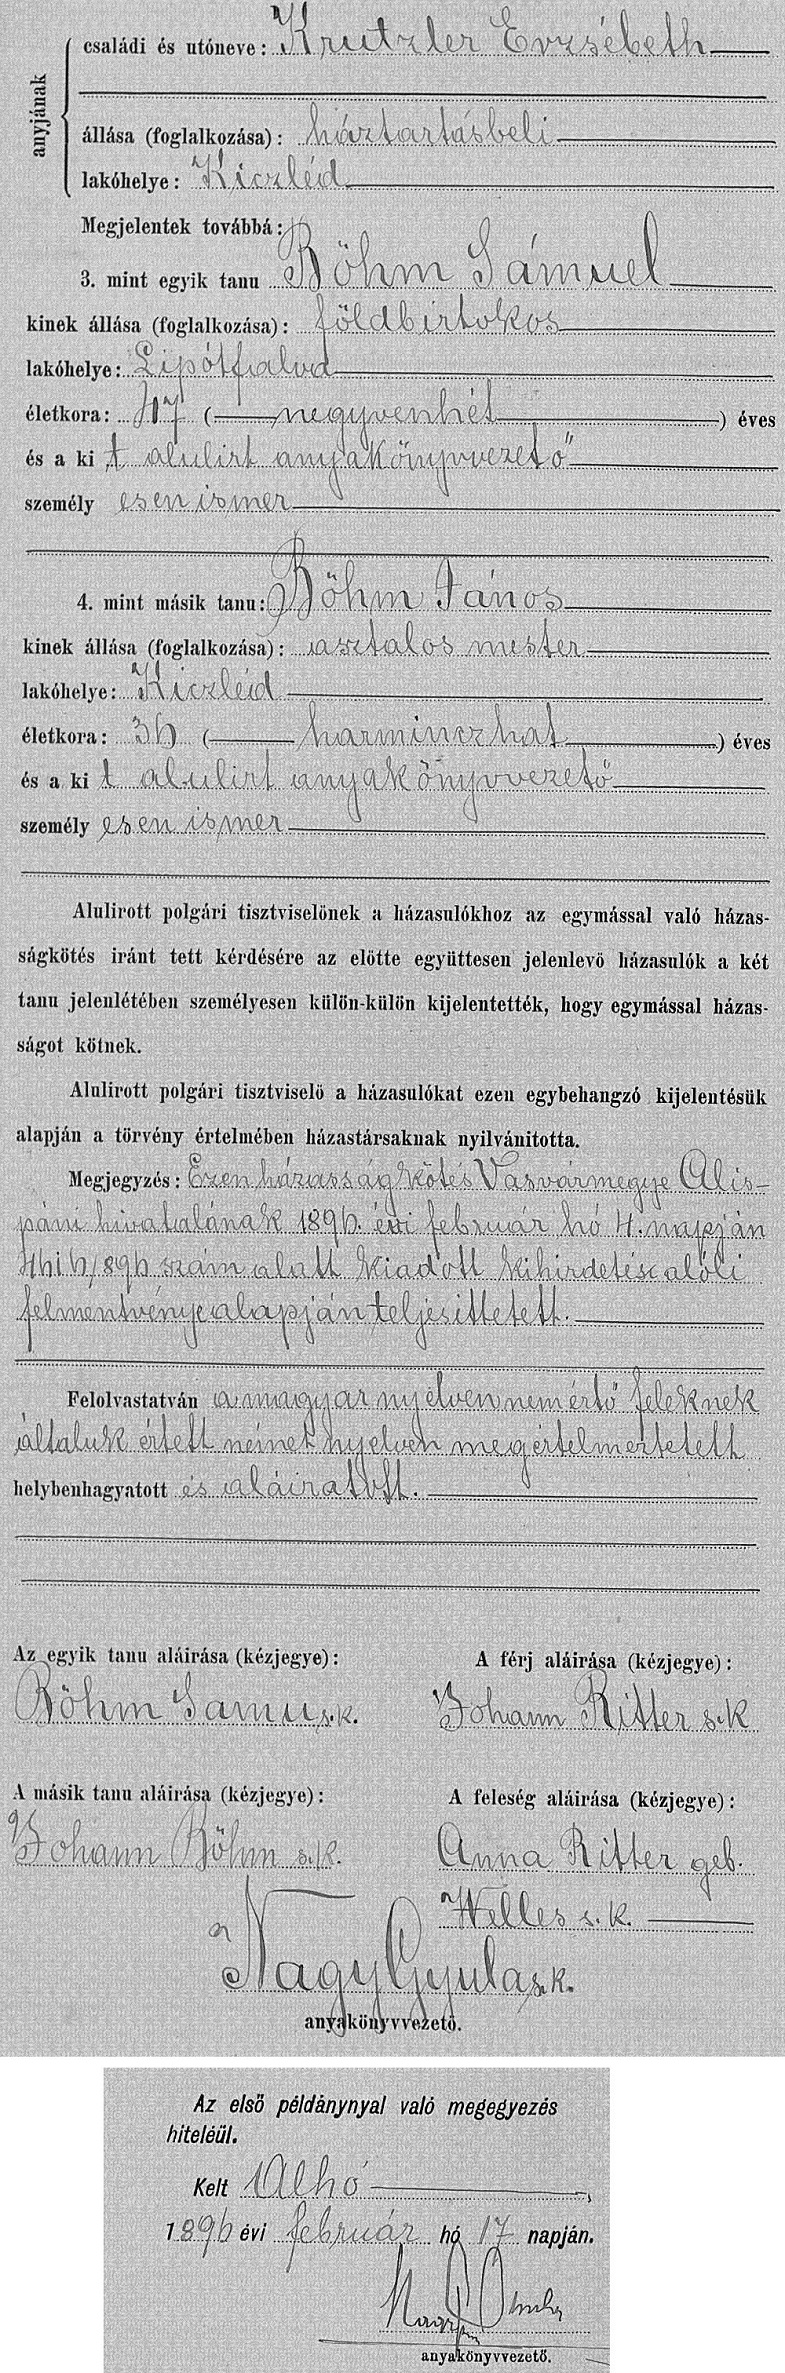 anyjának
családi és utóneve: Krutzler Erzsébeth
állása (foglalkozása): háztartásbeli
lakóhelye: Kiczléd
Megjelentek továbbá:
3. mint egyik tanu Böhm Sámuel
kinek állása (foglalkozása): földbirtokos
lakóhelye: Lipótfalva
életkora: 47 (negyvenhét) éves
és a ki t alulirt anyakönyvvezető
személy esen ismer
4. mint másik tanu: Böhm János
kinek állása (foglalkozása): asztalos mester
lakóhelye: Kiczléd
életkora: 36 (harminczhat) éves
és a ki t alulirt anyakönyvvezető
személy esen ismer
Alulirott polgári tisztviselönek a házasulókhoz az egymással való házas-
ságkötés iránt tett kérdésére az elötte együttesen jelenlevö házasulók a két
tanu jelenlétében személyesen külön-külön kijelentették, hogy egymással házas-
ságot kötnek.
Alulirott polgári tisztviselö a házasulókat ezen egybehangzó kijelentésük
alapján a törvény értelmében házastársaknak nyilvánitotta.
Megjegyzés: Ezen házasságkötés Vasvármegye Alis-
páni hivatalának 1896. évi február hó 4. napján
4616/896 szám alatt kiadott kihirdetés alóli
felmentvénye alapján teljesittetett.
Felolvastatván a magyar nyelven nem értő feleknek
általuk értett német nyelven megértelmeztetett
helybenhagyatott és aláiratott.
Az egyik tanu aláirása (kézjegye): A férj aláirása (kézjegye):
Böhm Samu s.k. Johann Ritter s.k
A másik tanu aláirása (kézjegye): A feleség aláirása (kézjegye):
Johann Böhm s.k. Anna Ritter geb.
Welles s.k.
Nagy Gyula s.k.
anyakönyvvezetö.
Az első példánynyal való megegyezés
hiteléül.
Kelt Alhó,
1896 évi február hó 17 napján.
anyakönyvvezető.